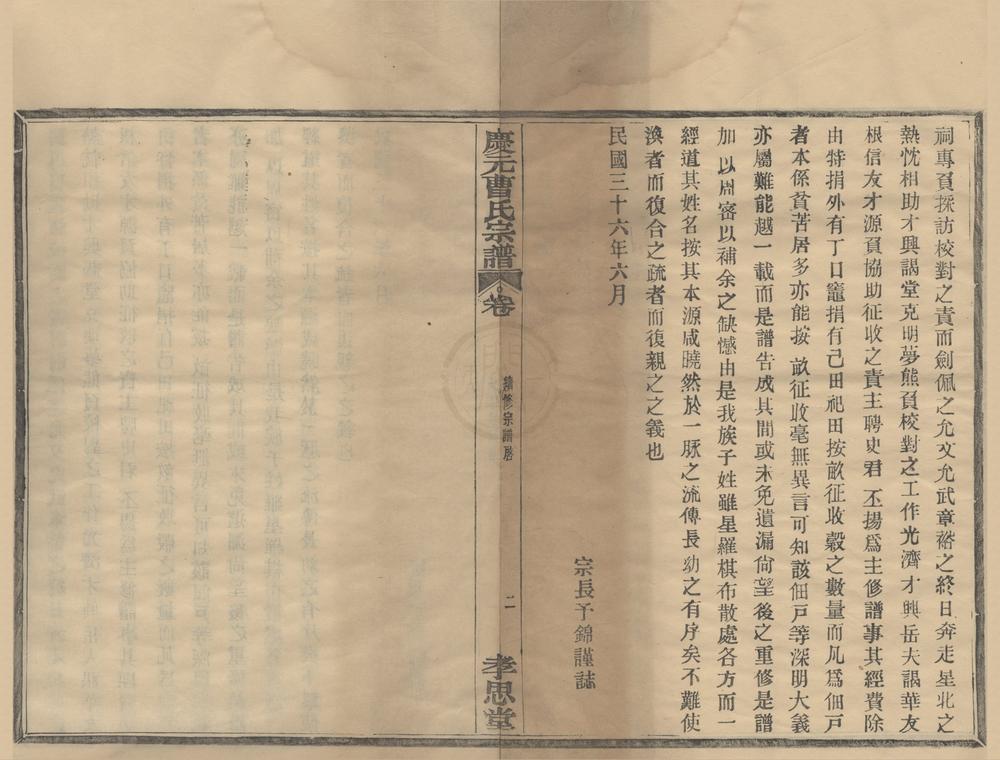 祠專員採訪校對之責而劍佩之允文允武章裕之終日奔走星北之
熱忱相助才興謁堂克明夢熊負校對之工作光濟才興岳夫謁華友
根信友才源負協助征收之責主聘史君 丕揚為主修譜事其經費除
由特捐外有丁口竈捐有己田祀田按畝征收穀之數量而凡為佃戶
者本係貧苦居多亦能按 畝征收毫無異言可知該佃戶等深明大義
亦屬難能越一 載而是譜告成其間或未免遺漏尙望後之重修是譜
加 以周密以補余之缺憾由是我族子姓雖星羅棋布散處各方而一
經道其姓名按其本源咸曉然於一脉之流傳長幼之有序矣不難使
渙者而復合之疏者而復親之之義也
民國三十六年六月
宗長予錦謹誌
慶元曹氏宗譜 卷 續修宗譜 二 孝思堂